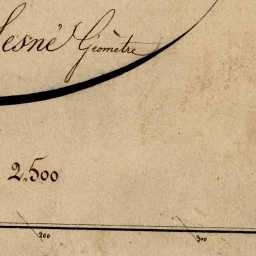 esné Géomètre
2.500
200 300